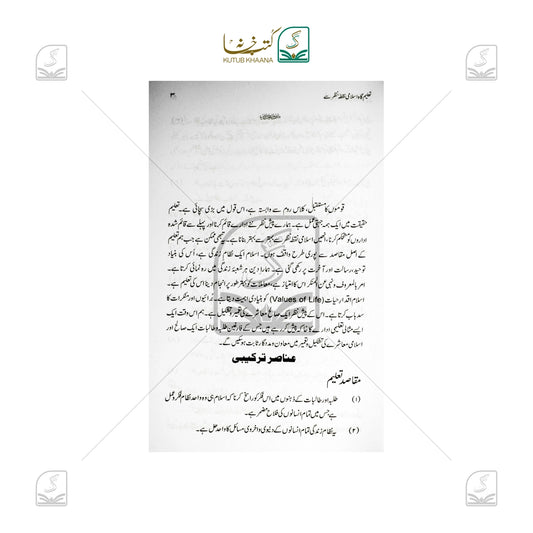 کتب خانہ
KUTUB KHAANA
تعلیم گاہ اسلامی نقطۂ نظر سے
۳
قوموں کا مستقبل، کلاس روم سے وابستہ ہے، اس قول میں بڑی سچائی ہے۔ تعلیم
حقیقت میں ایک ہمہ جہتی عمل ہے۔ ہمارے پیش نظر نئے ادارے قائم کرنا اور پہلے سے قائم شدہ
اداروں کو مستحکم کرنا، انھیں اسلامی نقطۂ نظر سے بہتر سے بہتر بنانا ہے۔ یہ تبھی ممکن ہے جب ہم تعلیم
کے اصل مقاصد سے پوری طرح واقف ہوں۔ اسلام ایک نظام زندگی ہے، اُس کی بنیاد
توحید، رسالت اور آخرت پر رکھی گئی ہے۔ ہمارا دین ہر شعبۂ زندگی میں رہ نمائی کرتا ہے۔
امر بالمعروف و نہی عن المنکر اس کا امتیاز ہے، معاملات کو بہتر طور پر انجام دینا اس کی تعلیم ہے۔
اسلام اقدارِ حیات (Values of Life) کو بنیادی اہمیت دیتا ہے۔ بُرائیوں اور منکرات کا
سدِ باب کرتا ہے۔ اس کے پیش نظر ایک صالح معاشرے کی تعمیر و تشکیل ہے۔ ہم اس وقت ایک
ایسے مثالی تعلیمی ادارے کا خاکہ پیش کر رہے ہیں جس کے فارغین طلبہ و طالبات ایک صالح اور
اسلامی معاشرے کی تشکیل و تعمیر میں معاون و مددگار ثابت ہو سکیں گے۔
عناصر ترکیبی
مقاصد تعلیم
(۱) طلبہ اور طالبات کے ذہنوں میں اس فکر کو راسخ کرنا کہ اسلام ہی وہ واحد نظام فکر و عمل
ہے جس میں تمام انسانوں کی فلاح مضمر ہے۔
(۲) یہ نظام زندگی تمام انسانوں کے دنیوی و اخروی مسائل کا واحد حل ہے۔